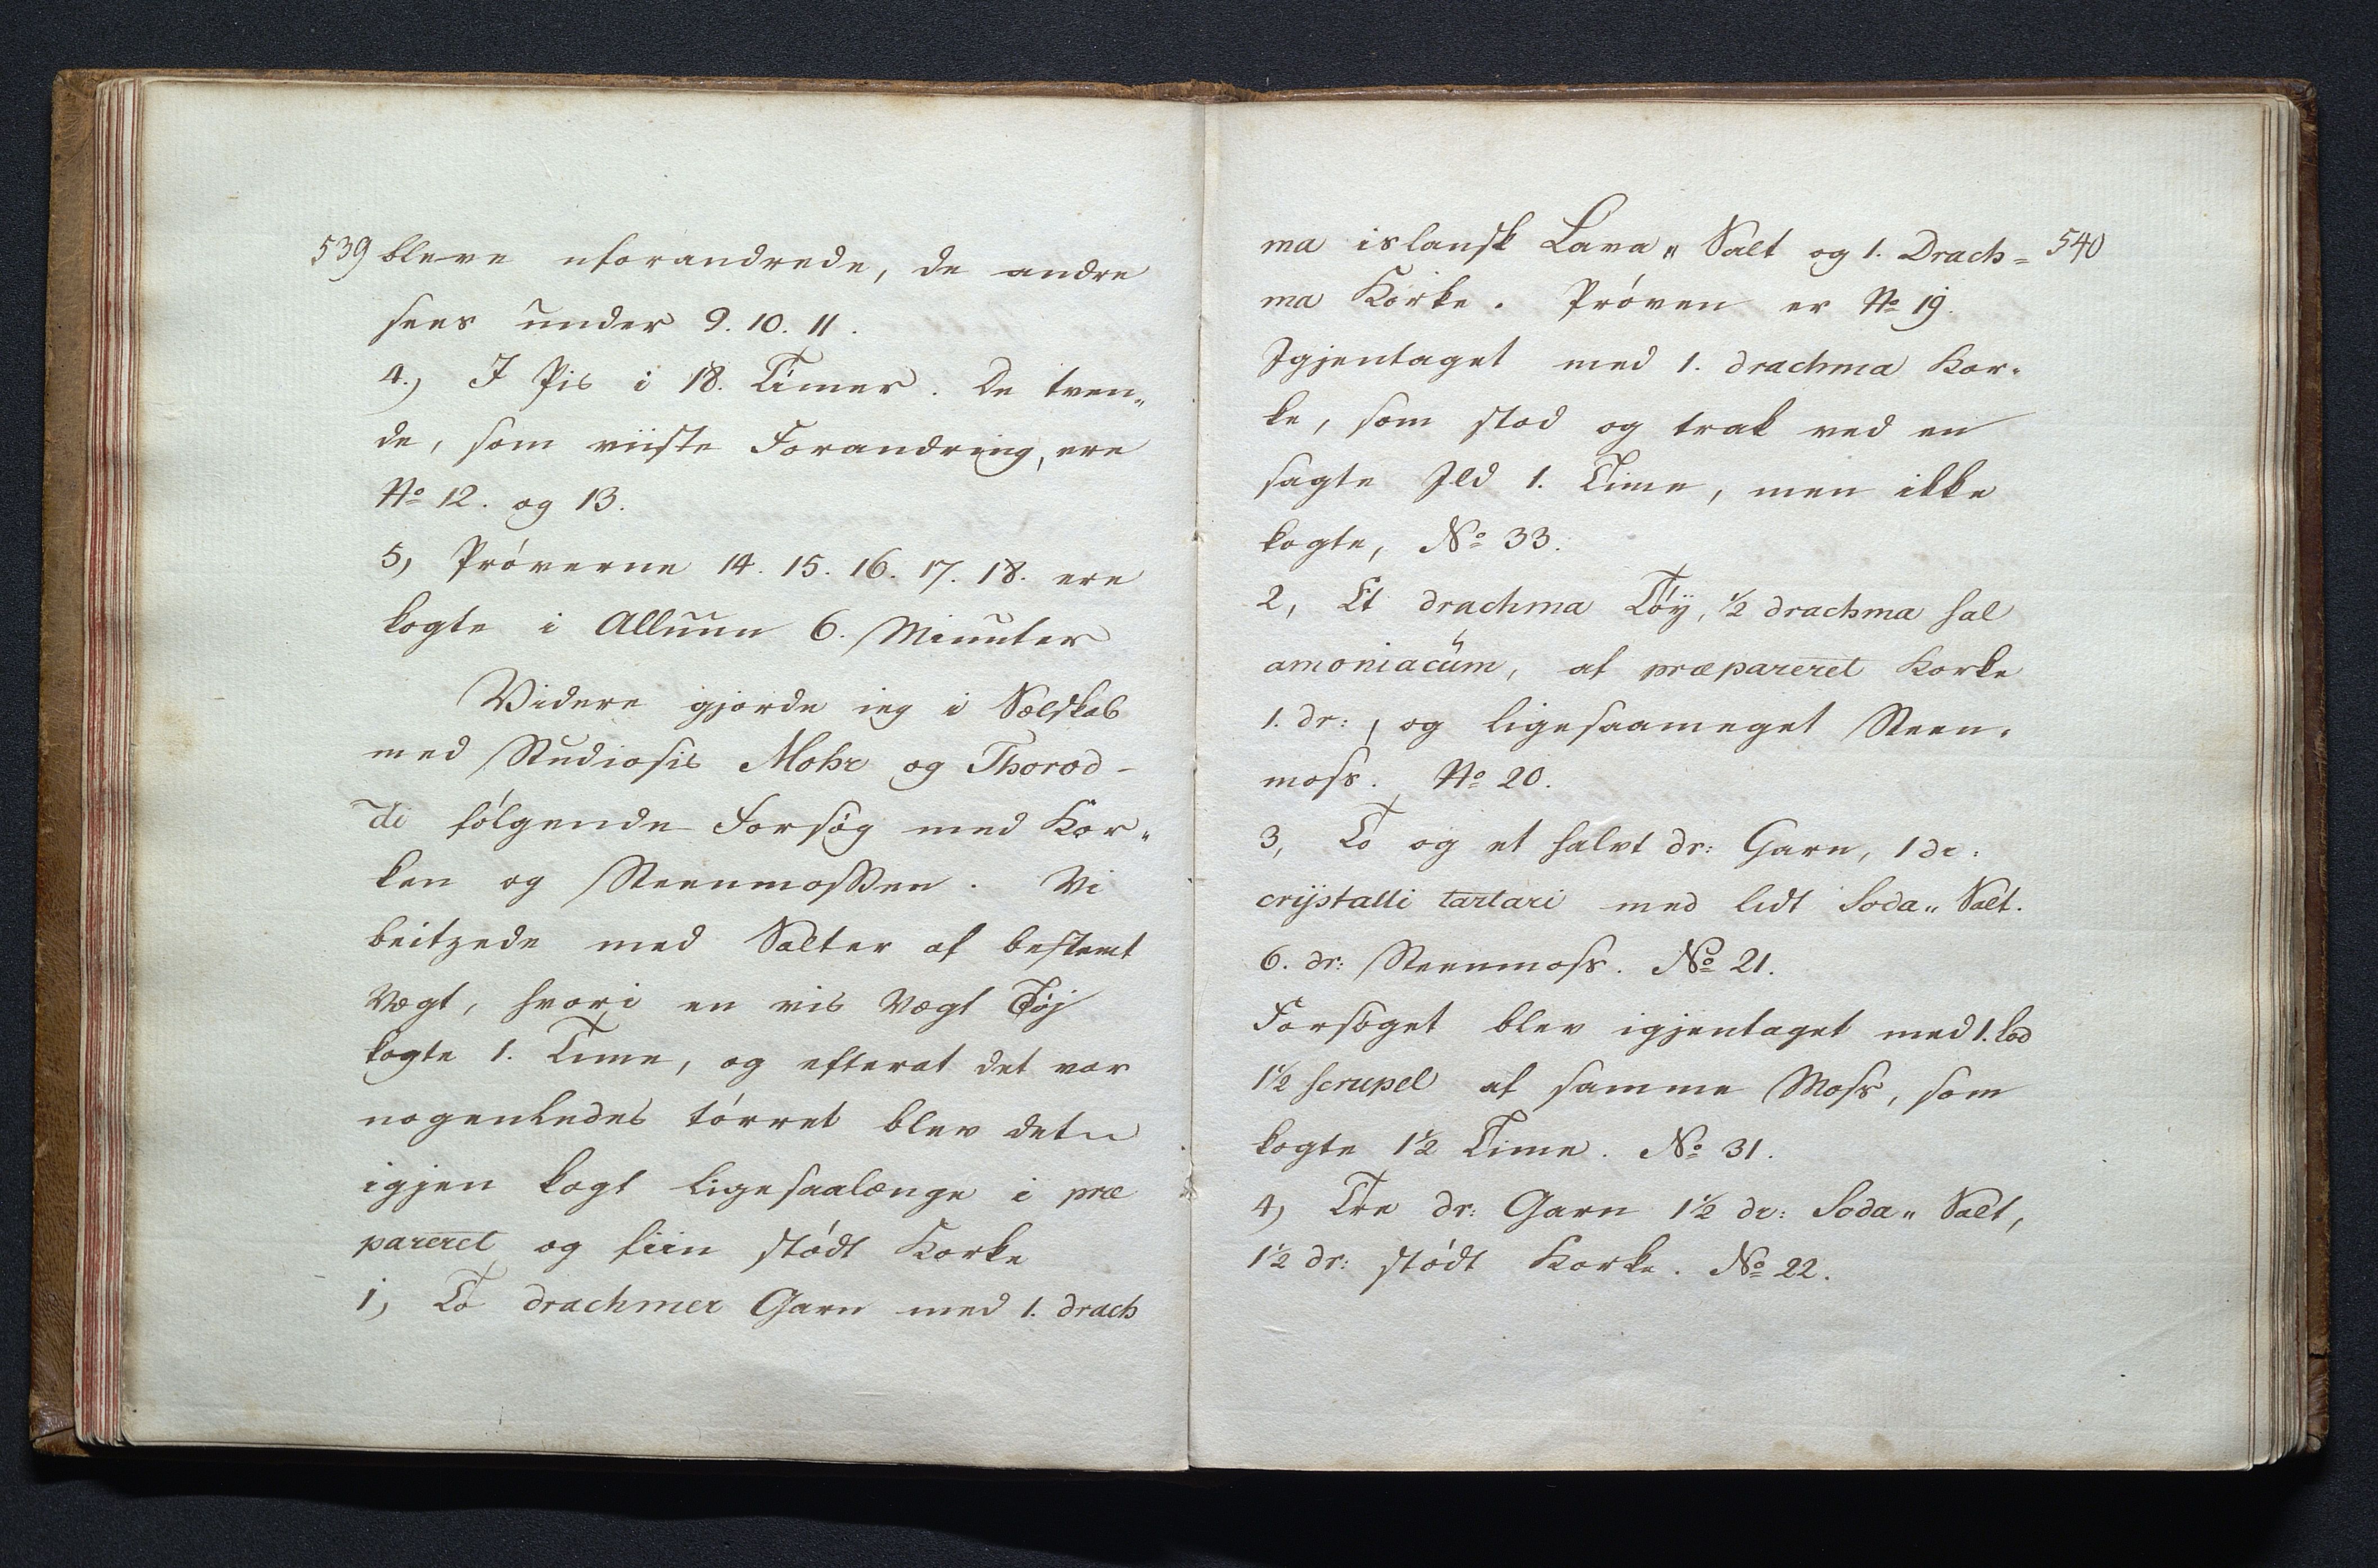 539 bleve uforandrede, de andre
sees under 9. 10. 11.
4.) I Pis i 18. Timer. De tven„
de, som viiste Forandring, ere
No 12. og 13.
5) Próverne 14. 15. 16. 17. 18. ere
kogte i Alluun 6. Minuter
Videre gjorde ieg i Sælskab
med Studiosis Mohr og Thorod-
di fólgende Forsøg med Kor„
ken og Steenmossen. Vi
beitzede med Salter af bestemt
Vægt, hvori en vis Vægt Tøj
kogte 1. Time, og efterat det var
nogenledes tórret blev det
igjen kogt ligesaalænge i præ
pareret og fiin stódt Korke
1) To drachmer Garn med 1. drach
ma islansk Lava„ Salt og 1. Drach= 540
ma Korke. Próven er No 19.
Igjentaget med 1. drachma Kor„
ke, som stod og trak ved en
sagte Ild 1. Time, men ikke
kogte, No 33.
2, Et drachma Tóÿ, ½ drachma sal
amoniacŭm, af præpareret Korke
1. dr:, og ligesaameget Steen„
moss. No 20.
3, To og et halvt dr: Garn, 1 dr:
crÿstalli tartari med lidt Soda„ Salt.
6. dr: Steenmoss. No 21.
Forsøget blev igjentaget med 1. lod
1½ scrupel af samme Moss, som
kogte 1½ Time. No 31.
4) Tre dr: Garn 1½ dr: Soda„ Salt,
1½ dr: stódt Korke. No 22.